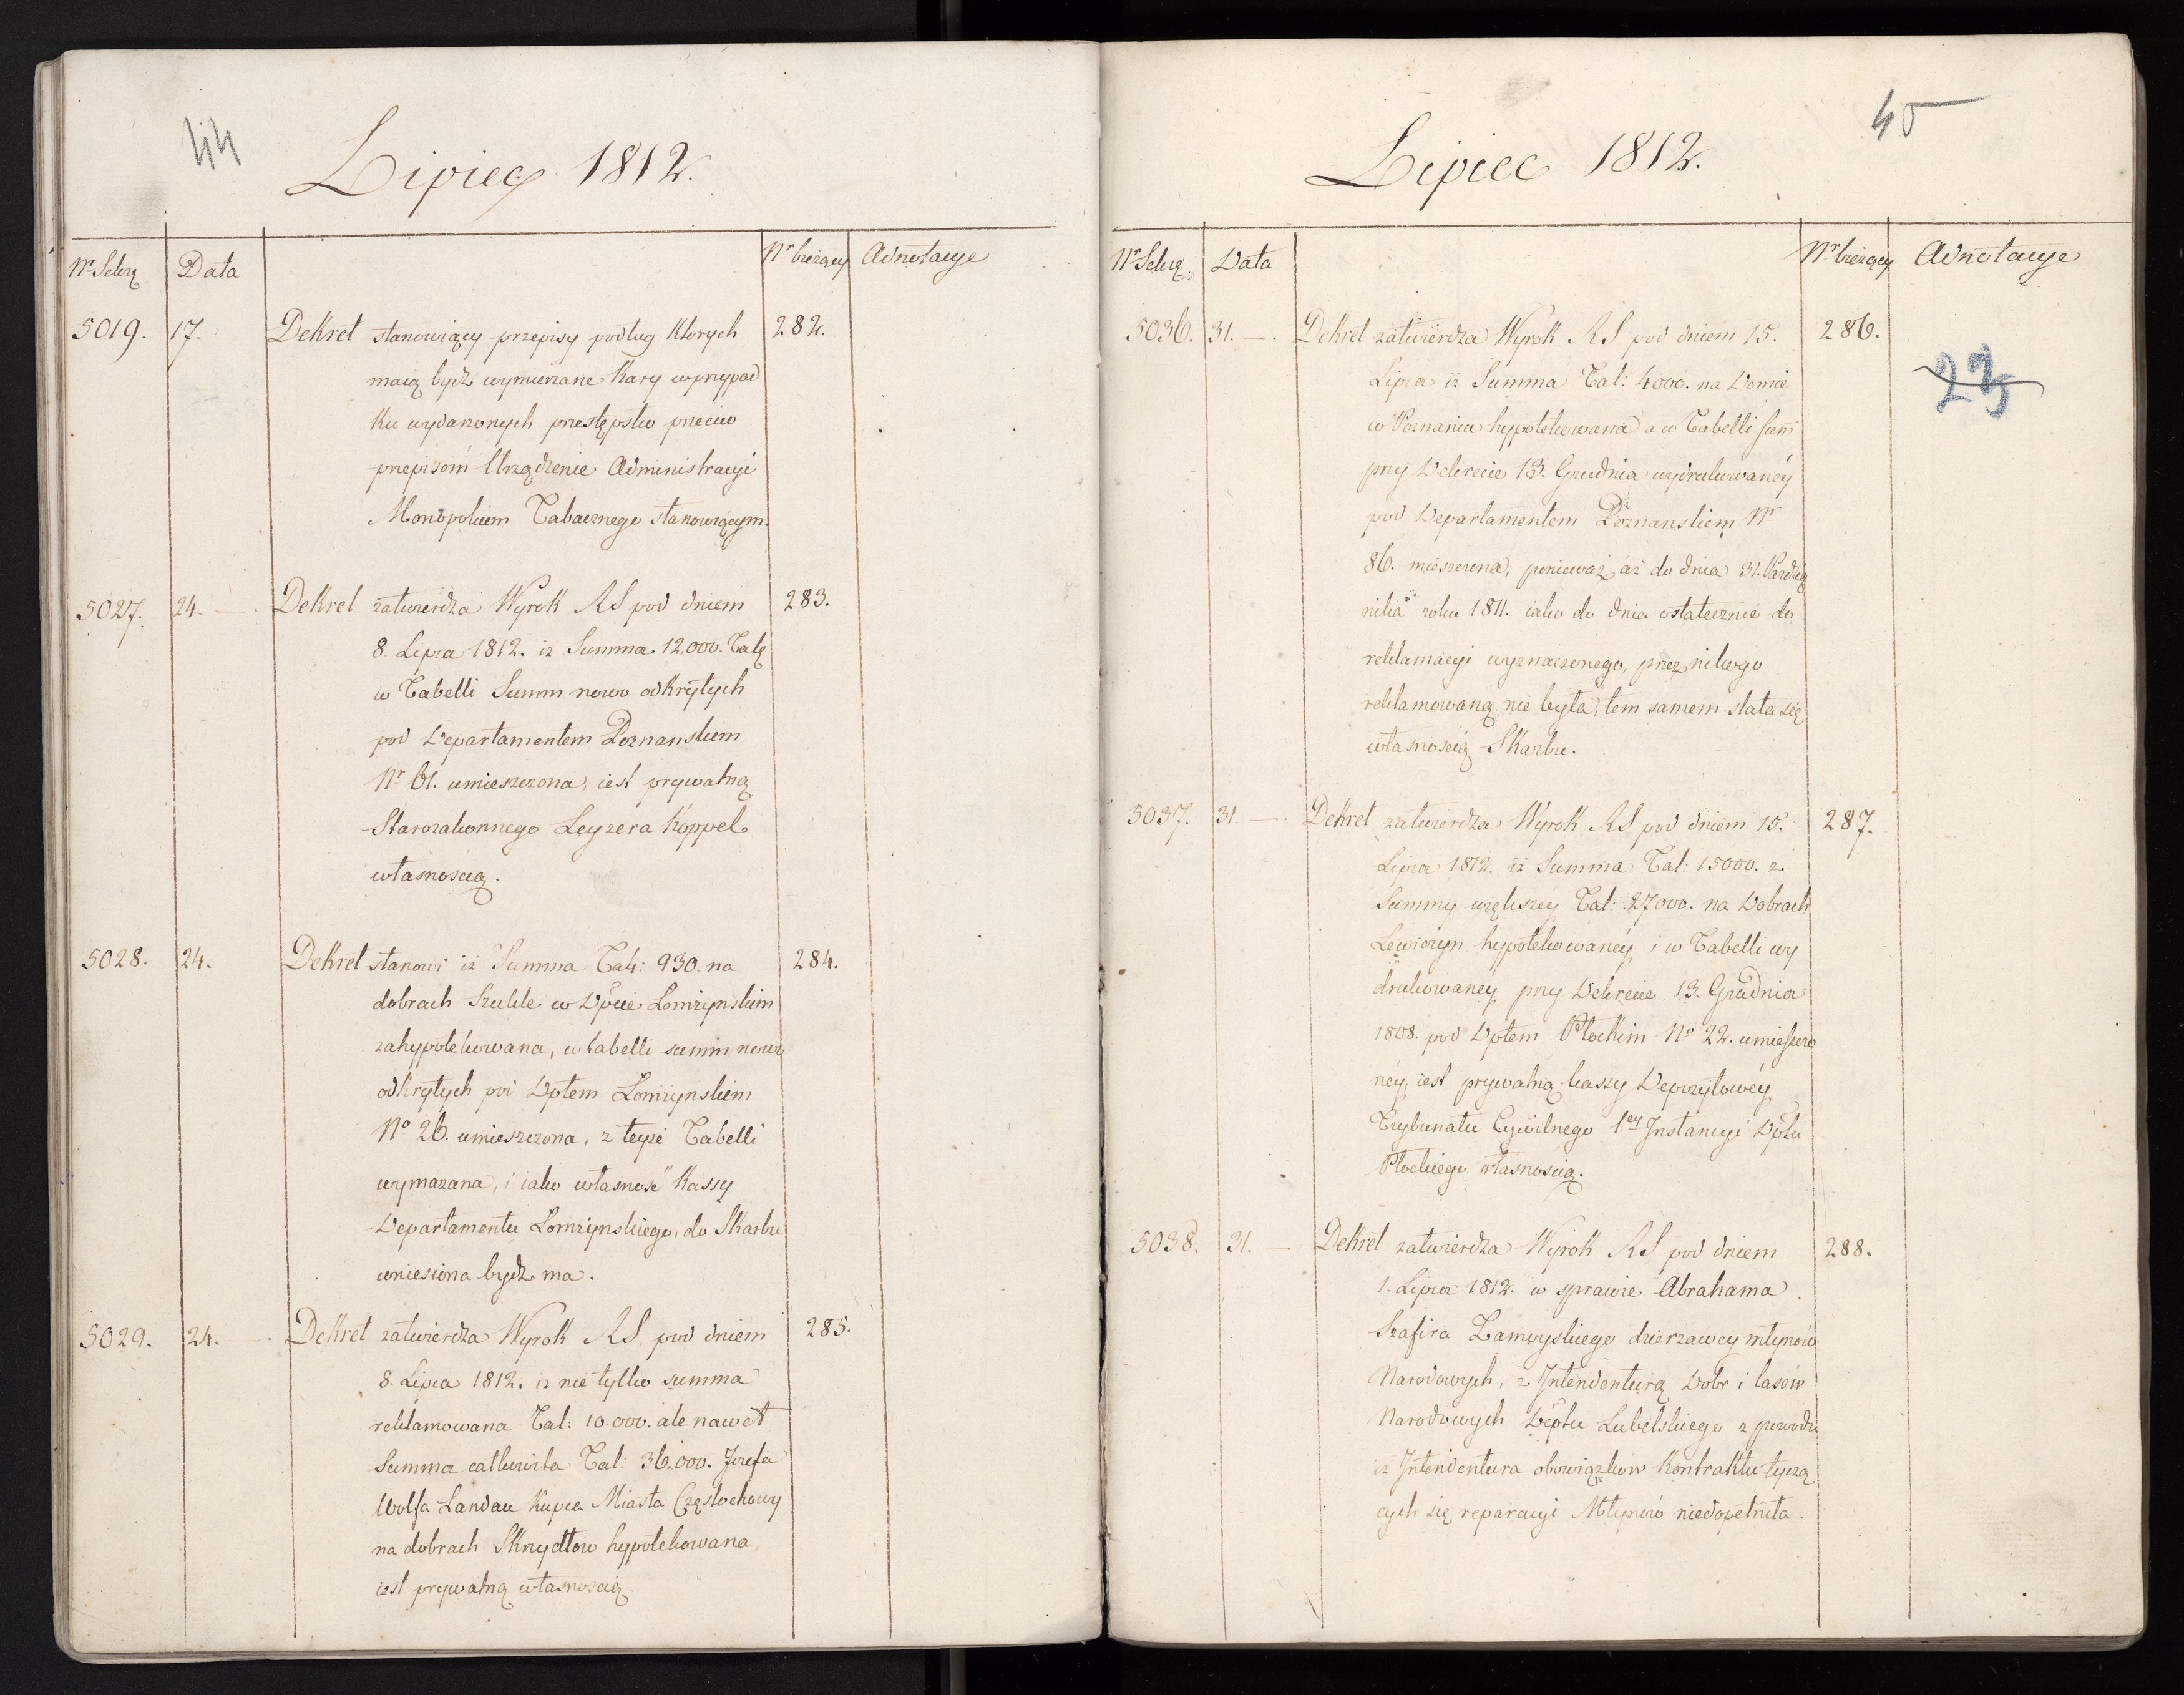 44
Lipiec 1812.
Nr Sekrę Data Nr bieżący Adnotacye
5019. 17. Dekret stanowiący przepisy podług ktorych 282.
maią bydź wymierzane kary w przypad
ku wydarzonych przestępstw przeciw
przepisom Urządzenie Administracyi
Monopolium Tabacznego stanowiącym.
5027. 24. — . Dekret zatwierdza Wyrok RS pod dniem 283.
8. Lipca 1812. iz Summa 12,000. Talę
w Tabelli Summ nowo odkrytych
pod Departamentem Poznanskim
Nr 61. umieszczona, iest prywatną
Starozakonnego Leyzera Koppel
własnoscią.
5028. 24. Dekret stanowi iż Summa Tal: 930. na 284.
dobrach Szulile w Dpcie Łomżynskim
zahypotekowana, w tabelli summ nowo
odkrytych pod Dptem Łomżynskiem
No 26. umieszczona, z teyże Tabelli
wymazana, i iako własnosć Kassy
Departamentu Łomżynskiego, do Skarbu
wniesiona bydź ma.
5029. 24. — . Dekret zatwierdza Wyrok RS pod dniem 285.
8. Lipca 1812. iz nie tylko summa
reklamowana Tal: 10.000. ale nawet
Summa całkowita Tal: 36.000. Jozefa
Wolfa Landau Kupca Miasta Częstochowy
na dobrach Skrzydłow hypotekowana,
iest prywatną własnoscią.
45
Lipiec 1812.
Nr Sekrę Data Nr bieżący Adnotacye
5036. 31. — . Dekret zatwierdza Wyrok RS pod dniem 15. 286.
Lipca iż Summa Tal: 4000. na Domie
w Poznaniu hypotekowana a w Tabelli sum̄
przy Dekrecie 13. Grudnia wydrukowanéy
pod Departamentem Poznanskiem Nr
86. mieszczona, ponieważ aż do dnia 31. Pazdzię
nika roku 1811. iako do dnia ostatecznie do
reklamacyi wyznaczonego, przez nikogo
reklamowaną nie była, tem samem stała się
własnoscią Skarbu.
5037. 31. — . Dekret zatwierdza Wyrok RS pod dniem 15. 287.
Lipca 1812. iż Summa Tal: 15000. z
Summy większey Tal: 27000. na Dobrach
Lewiczyn hypotekowanéy i w Tabelli wy
drukowanéy przy Dekrecie 13. Grudnia
1808. pod Dptem Płockim No 22. umieszczo
néy, iest prywatną kassy Depozytowéy
Trybunału Cywilnego 1ey Jnstancyi Dptu
Płockiego własnoscią.
5038. 31. — Dekret zatwierdza Wyrok RS pod dniem 288.
1. Lipca 1812. w sprawie Abrahama
Szafira Zamoyskiego dzierzawcy młynow
Narodowych, z Jntendenturą Dobr i lasów
Narodowych Deptu Lubelskiego z powodu
iż Jntendentura obowiązkow Kontraktu tyczą
cych się reparacyi Młynów niedopełniła.